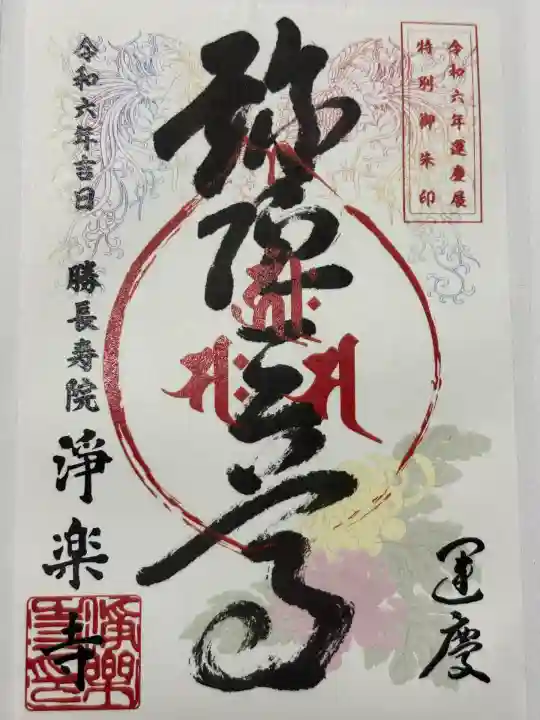 令和六年運慶展
特別御朱印
弥陀三尊
運慶
令和六年吉日
勝長寿院
淨楽寺